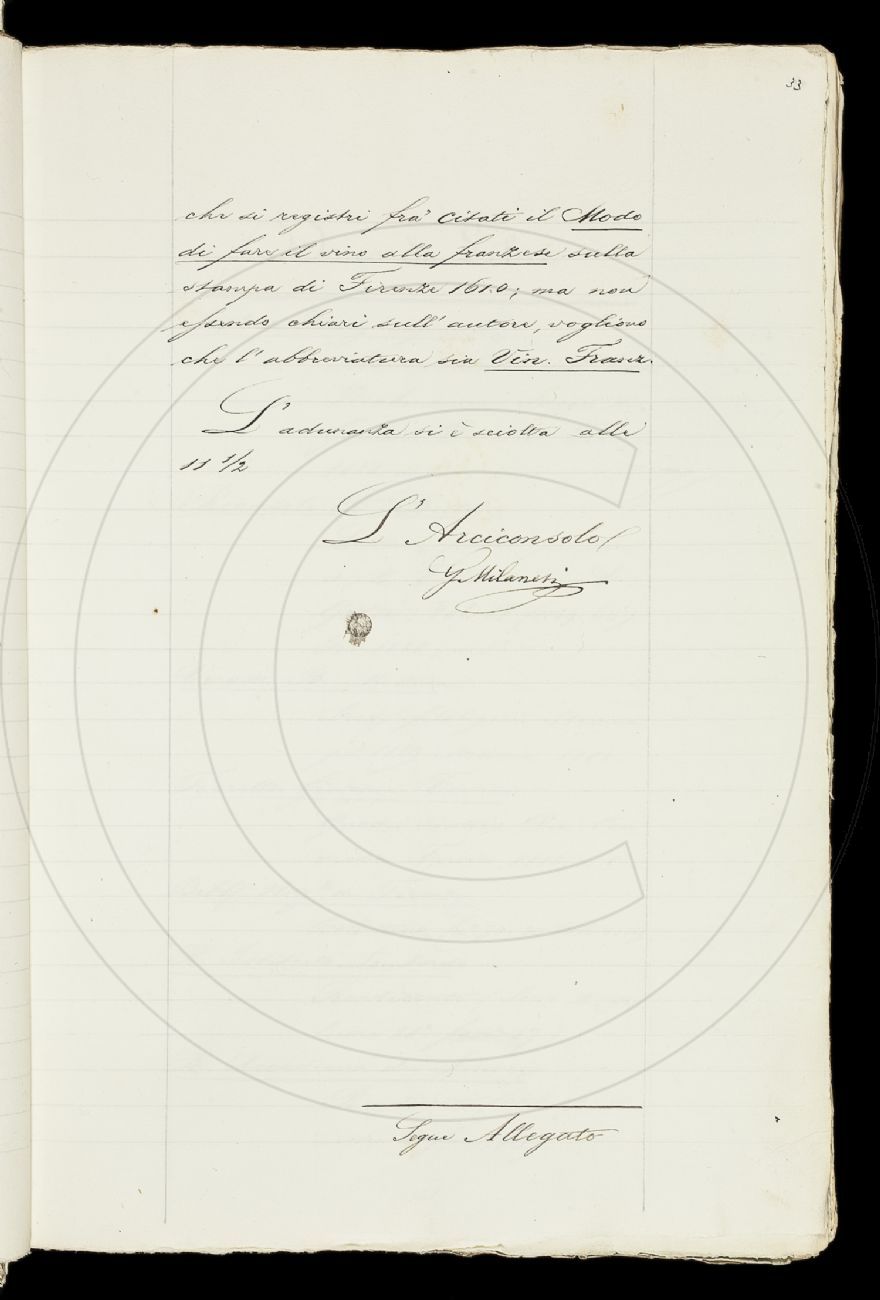 33
che si registri fra' citati il Modo
di fare il vino alla franzese sulla
stampa di Firenze 1610; ma non
essendo chiari sull' autore, vogliono
che l' abbreviatura sia Vin. Franz.
L' adunanza si è sciolta alle
11 1/2
L' Arciconsolo
Milanesi
Segue Allegato